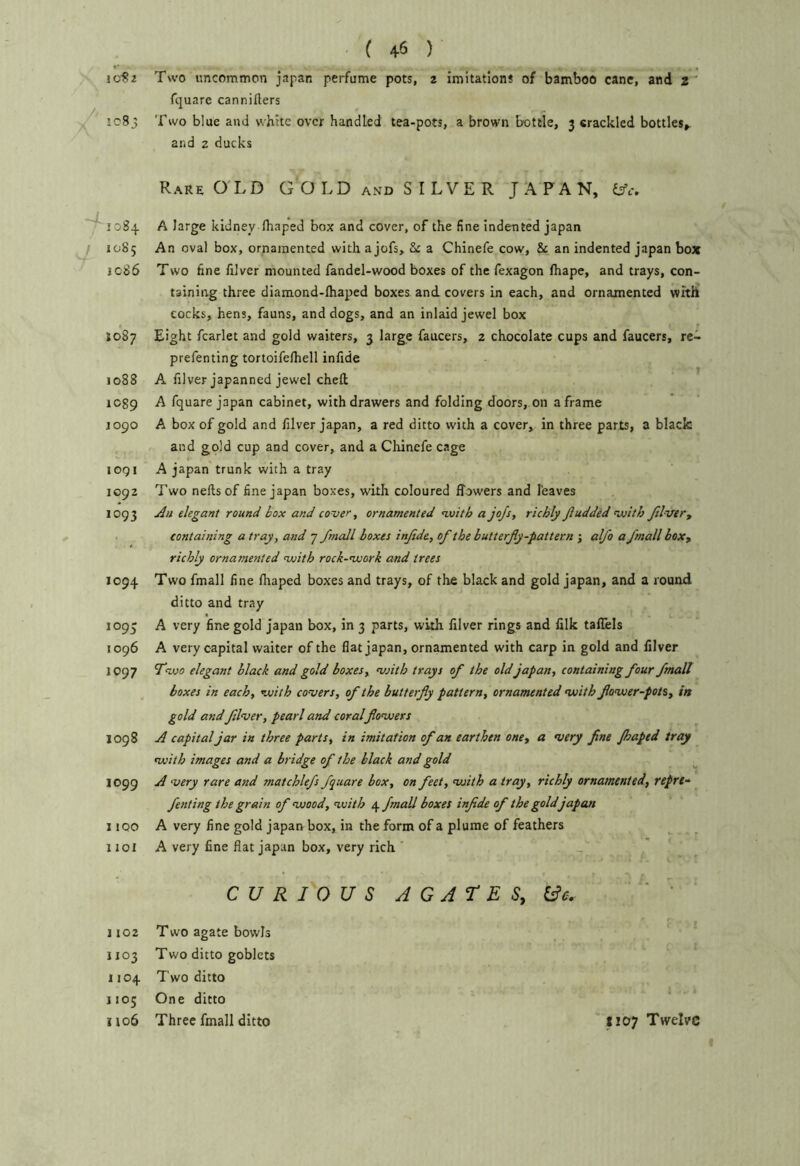 ( 46 )
1082 Two uncommon japan perfume pots, 2 imitations of bamboo cane, and 2
ſquare canniſters
1083 Two blue and white over handled tea-pots, a brown bottle, 3 crackled bottles,
and 2 ducks
RARE OLD GOLD AND SILVER JAPAN, &c.
1084 A large kidney ſhaped box and cover, of the fine indented japan
1085 An oval box, ornamented with a joſs, & a Chineſe cow, & an indented japan box
1086 Two fine ſilver mounted ſandel-wood boxes of the ſexagon ſhape, and trays, con-
taining three diamond-ſhaped boxes and covers in each, and ornamented with
cocks, hens, fauns, and dogs, and an inlaid jewel box
1087 Eight ſcarlet and gold waiters, 3 large ſaucers, 2 chocolate cups and ſaucers, re-
preſenting tortoiſeſhell inſide
1088 A ſilver japanned jewel cheſt
1089 A ſquare japan cabinet, with drawers and folding doors, on a frame
1090 A box of gold and ſilver japan, a red ditto with a cover, in three parts, a black
and gold cup and cover, and a Chineſe cage
1091 A japan trunk with a tray
1092 Two neſts of fine japan boxes, with coloured flowers and leaves
1093 An elegant round box and cover, ornamented with a joſs, richly ſtudded with ſilver,
containing a tray, and 7 ſmall boxes inſide, of the butterfly-pattern ; alſo a ſmall box,
richly ornamented with rock-work and trees
1094 Two ſmall fine ſhaped boxes and trays, of the black and gold japan, and a round
ditto and tray
1095 A very fine gold japan box, in 3 parts, with ſilver rings and ſilk taſſels
1096 A very capital waiter of the flat japan, ornamented with carp in gold and ſilver
1097 Two elegant black and gold boxes, with trays of the old japan, containing four ſmall
boxes in each, with covers, of the butterfly pattern, ornamented with flower-pots, in
gold and ſilver, pearl and coral flowers
1098 A capital jar in three parts, in imitation of an earthen one, a very fine ſhaped tray
with images and a bridge of the black and gold
1099 A very rare and matchleſs ſquare box, on feet, with a tray, richly ornamented, repre-
ſenting the grain of wood, with 4 ſmall boxes inſide of the gold japan
1100 A very fine gold japan box, in the form of a plume of feathers
1101 A very fine flat japan box, very rich
CURIOUS AGATES, &c.
1102 Two agate bowls
1103 Two ditto goblets
1104 Two ditto
1105 One ditto
1106 Three ſmall ditto
1107 Twelve